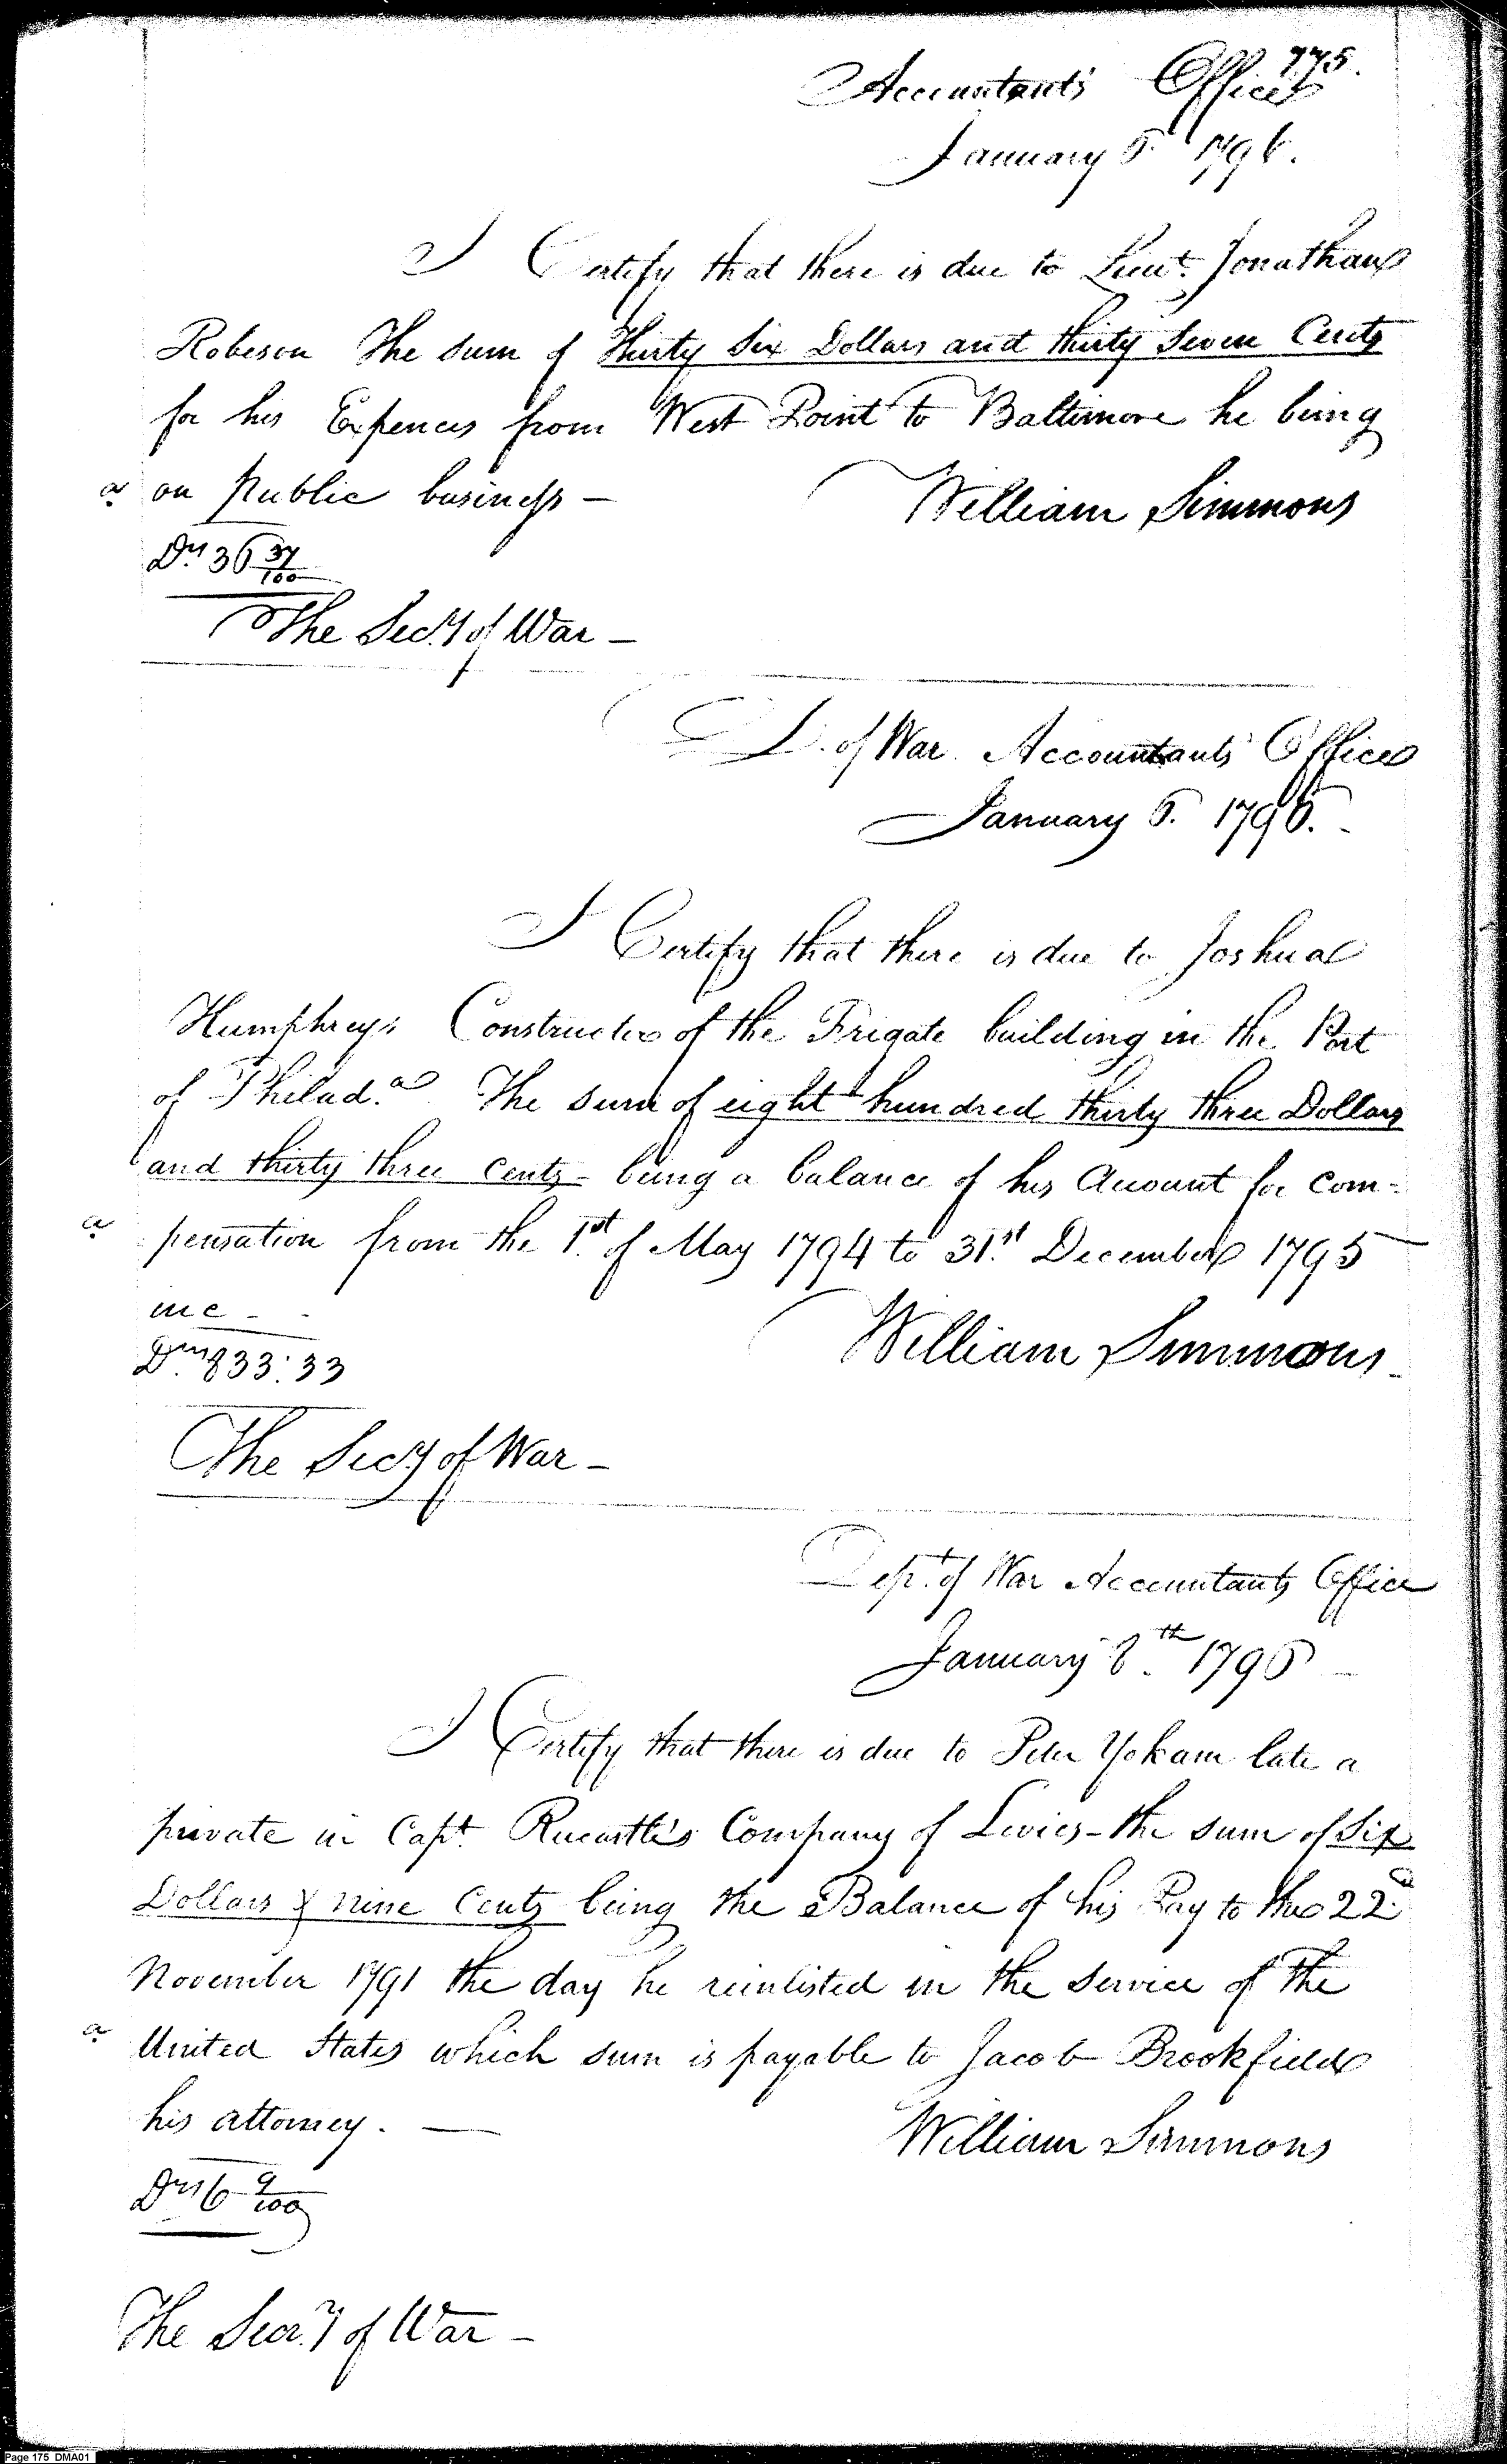 175.
Accountants Office
January 5 1796.
I Certify that there is due to Lieut. Jonathan
Robeson The sum of Thirty Six Dollars and thirty Seven Cents
for his Expences from West Point to Baltimore he being
a on Public business —
William Simmons
Drs 36 37/100
The Secy of War —
D. of War Accountants Office
January 6. 1796.
I Certify that there is due to Joshua
Humphreys Constructor of the Frigate building in the Port
of Philada. The sum of eight hundred thirty three Dollars
and thirty three Cents - being a balance of his Account for Com-
a pensation from the 1st of May 1794 to 31st December 1795
inc -
William Simmons
Drs 833.33
The Secy of War —
Dept. of War Accountants Office
January 8th 1796
I Certify that there is due to Peter Yokam late a
private in Capt. Company of Levies - the sum of Six
Dollars & nine Cents being the Balance of his Pay to the 22d
November 1791 the day he reinlisted in the Service of the
a United States which sum is payable to Jacob Brookfield
his attorney. —
William Simmons
Drs 6 9/100
The Secry of War —
Page 175 DMA01